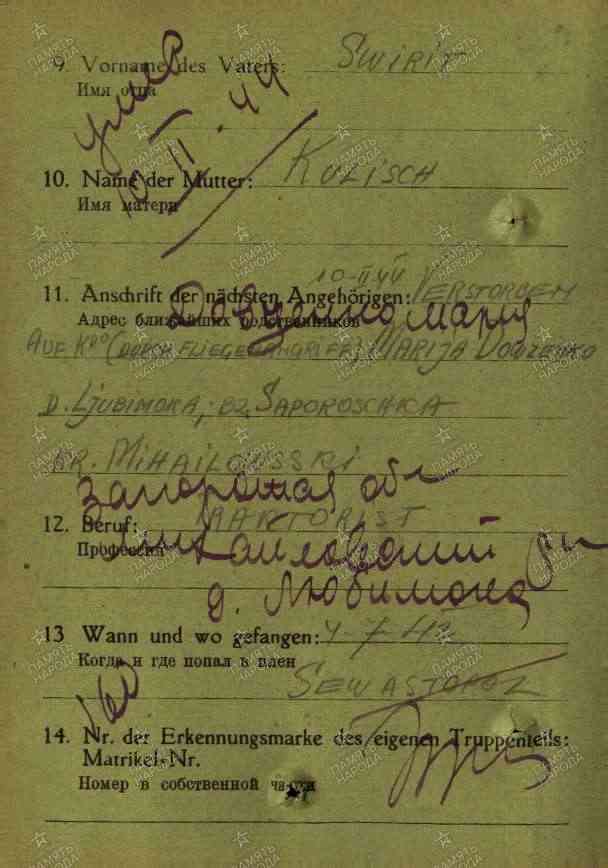 9. Vorname des Vaters: SWIRIT
Имя отца
умер
10. II. 44
10. Name der Mutter: KULISCH
Имя матери
10-II 44 VERSTORBEN
11. Anschrift der nächsten Angehörigen:
Адрес ближайших родственников
Довженко Мария
AUF KDO (DURCH FLIEGERANGRIFF) MARIJA DOWZENKO
D. LJUBIMOKA; BZ. SAPOROSCHKA
KR. MIHAILOWSSKI
запорожская обл
12. Beruf: MAKTORIST
Профессия
михайловский
д. Любимока
13 Wann und wo gefangen: 4-7-42
Когда и где попал в плен
SEWASTOPOL
160
14. Nr. der Erkennungsmarke des eigenen Truppenteils:
Matrikel-Nr.
Номер в собственной части
ПАМЯТЬ НАРОДА